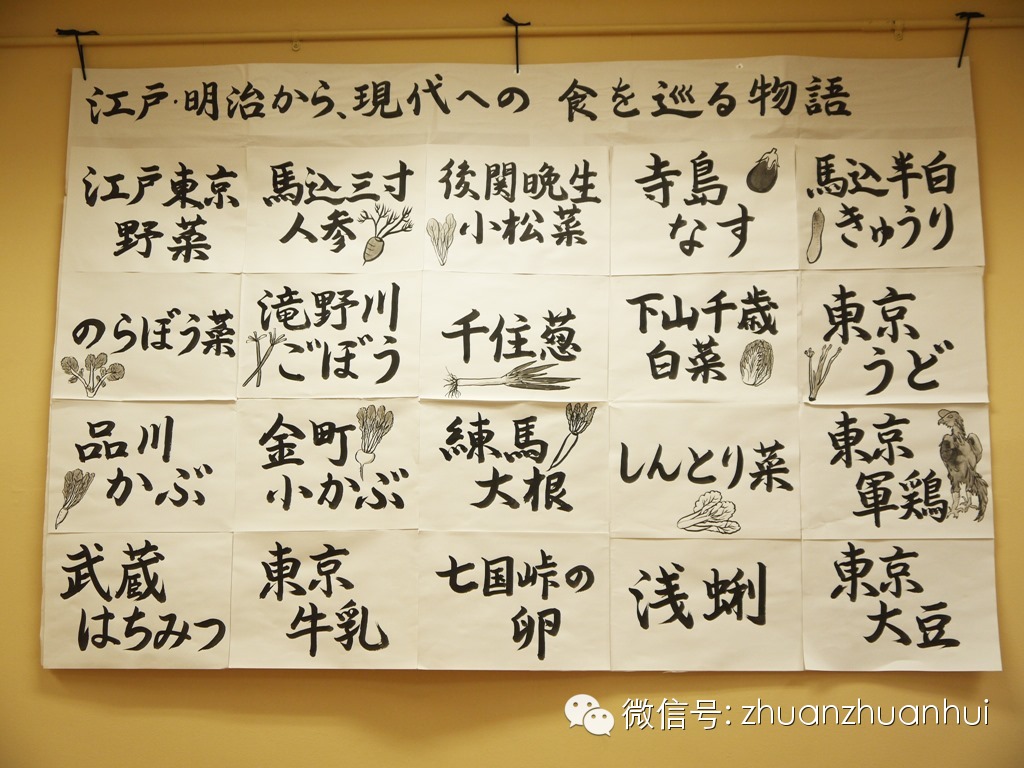 江戸・明治から、現代への 食を巡る物語
江戸東京
野菜
馬込三寸
人参
後関晩生
小松菜
寺島
なす
馬込半白
きゅうり
のらぼう菜
滝野川
ごぼう
千住葱
下山千歳
白菜
東京
うど
品川
かぶ
金町
小かぶ
練馬
大根
しんとり菜
東京
軍鶏
武蔵
はちみつ
東京
牛乳
七国峠の
卵
浅蜊
東京
大豆
微信号: zhuanzhuanhui